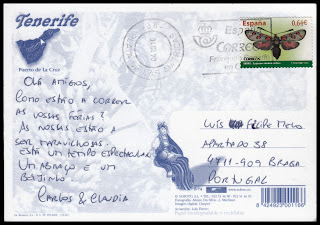 Tenerife
Puerto de La Cruz
España
0,64€
CORREOS
OLÁ AMIGOS,
COMO ESTÃO A CORRER
AS VOSSAS FÉRIAS?
AS NOSSAS ESTÃO A
SER MARAVILHOSAS.
ESTÁ UM TEMPO ESPECTACULAR.
UM ABRAÇO E UM
BEIJINHO.
CARLOS & CLAUDIA
LUÍS FILIPE MELO
APARTADO 38
4711-909 BRAGA
PORTUGAL
8 424623 001106